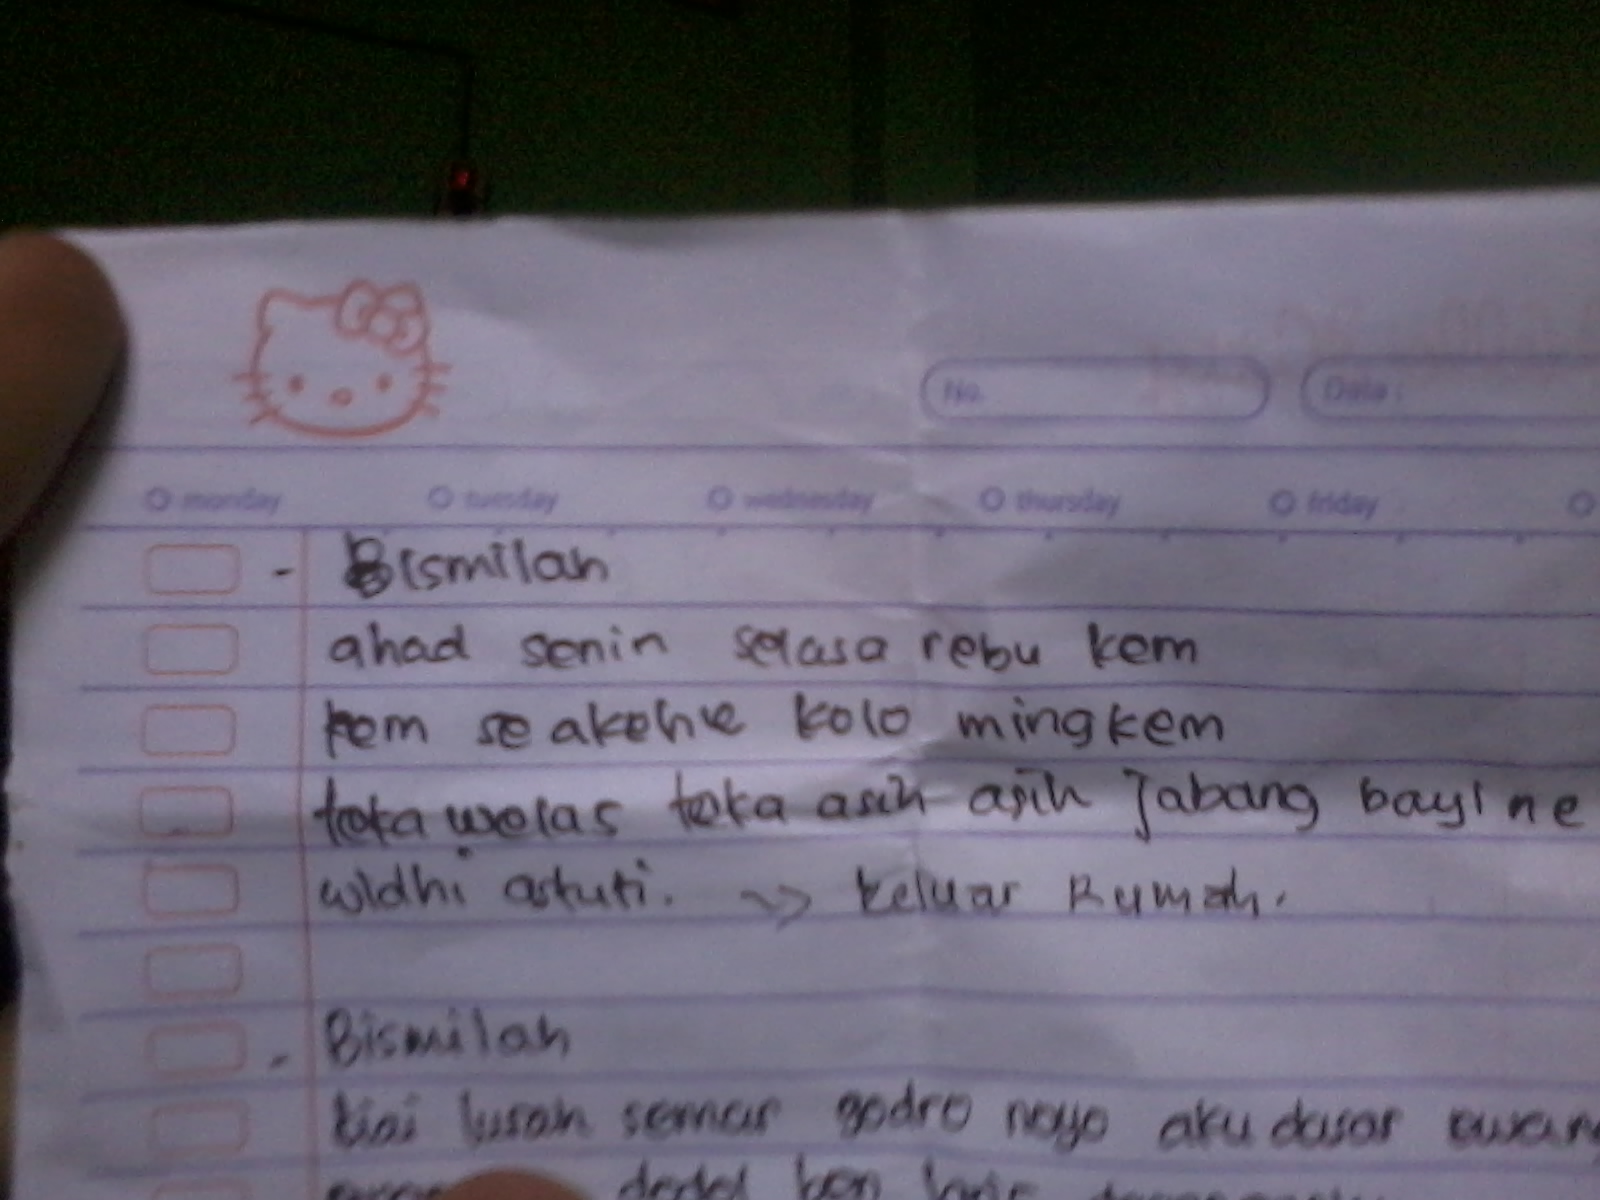 No. Date :
monday tuesday wednesday thursday friday
- Bismilah
ahad senin selasa rebu kem
kem se akehe kolo mingkem
teka welas teka asih asih Jabang bayi ne
widhi astuti. → keluar Rumah.
- Bismilah
kiai lurah semar godro noyo aku dasar awang
dedel ben laris